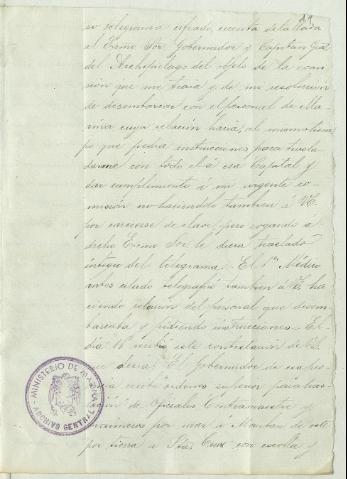 telegrama cifrado, cuenta detallada
al Excmo Sor. Gobernador y Capitan Gral
del Archipielago del objeto de la comi
sion que me traia y de mi resolucion
de desembarcar con el personal de Ma
rina cuya relacion hacia, al mismo tiem
po que pedia instrucciones para trasla
darme con todo él á esa Capital y
dar cumplimiento á mi urgente co
mision no haciendolo tambien á VE.
por carecer de clave, pero rogando á
dicho Excmo Sor le diera traslado
integro del telegrama. El Médico
antes citado telegrafia tambien á VE ha
ciendo relacion del personal que desem
barcaba y pidiendo instrucciones. El
dia 16 recibo contestacion de
decia: El Gobernador de
recibe ordenes superior para
de Oficiales Contramaestre y
marineros por mar a
por tierra a Sta Cruz con escolta y
MINISTERIO DE MARINA
ARCHIVO CENTRAL